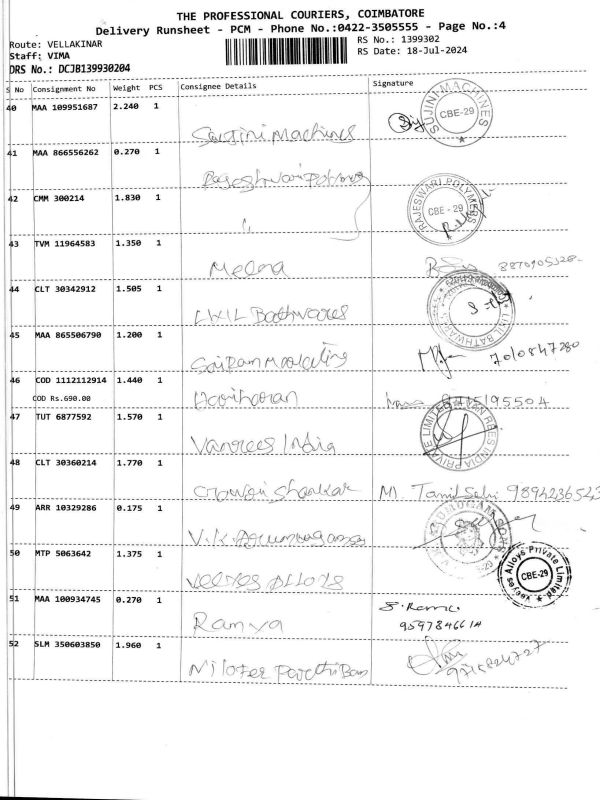 THE PROFESSIONAL COURIERS, COIMBATORE
Delivery Runsheet - PCM - Phone No.:0422-3505555 - Page No.:4
Route: VELLAKINAR
RS No.: 1399302
Staff: VIMA
RS Date: 18-Jul-2024
DRS No.: DCJB139930204
S No Consignment No Weight PCS Consignee Details Signature
40 MAA 109951687 2.240 1
SUJINI MACHINES CBE-29
Machines
41 MAA 866556262 0.270 1
42 CMM 300214 1.830 1
RAJESWARI POLYMERS CBE - 29
43 TVM 11964583 1.350 1
Meena
44 CLT 30342912 1.505 1
Bathwares
45 MAA 865506790 1.200 1
Sairam 7010847280
46 COD 1112112914 1.440 1
COD Rs.690.00
Hariharan
47 TUT 6877592 1.570 1
VANREES INDIA PRIVATE LIMITED
Vanrees India
48 CLT 30360214 1.770 1
Gowri Shankar M. Tamil Selvi 9894236523
49 ARR 10329286 0.175 1
V.K.
50 MTP 5063642 1.375 1
Xeeyes Alloys Private Limited CBE-29
51 MAA 100934745 0.270 1
Ramya
9597846614
52 SLM 350603850 1.960 1
Nilofer Parthiban